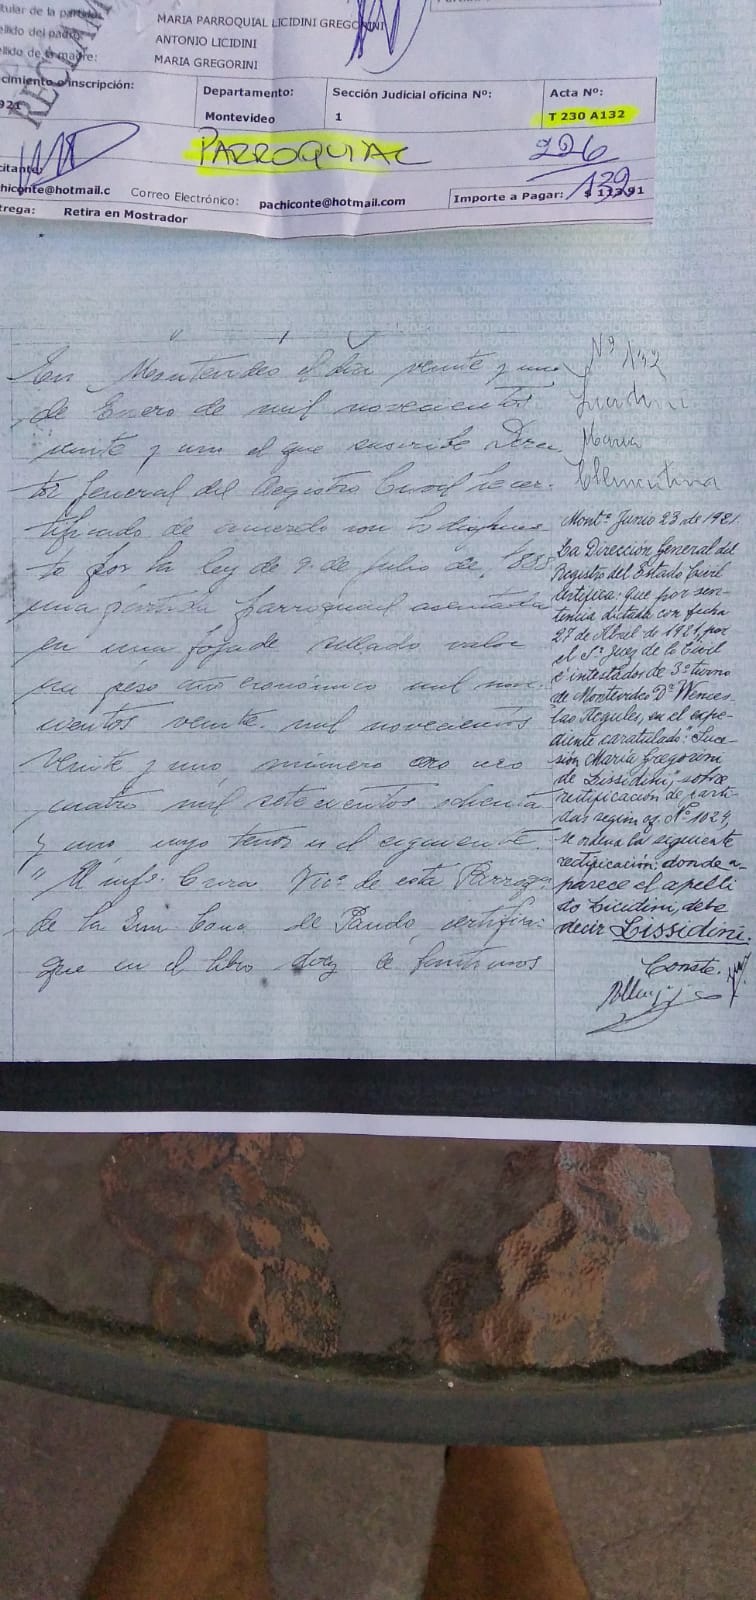 MARIA PARROQUIAL LICIDINI GREGORINI
ANTONIO LICIDINI
MARIA GREGORINI
RECLAM
Departamento:
Montevideo
Sección Judicial oficina Nº:
1
Acta Nº:
T 230 A132
PARROQUIAL
226
132
Correo Electrónico: pachiconte@hotmail.com
Importe a Pagar:
Retira en Mostrador
En Montevideo el dia veinte y uno
de Enero de mil novecientos
veinte y uno el que suscribe Direc
tor General del Registro Civil he cer-
tificado de acuerdo con lo dispues
to por la ley de 9 de Julio de 1885
una partida parroquial asentada
en una foja de sellado valor
un peso año económico mil nove
cientos veinte mil novecientos
veinte y uno, número cero
cuatro mil setecientos ochenta
y uno, cuyo tenor es el siguiente
" El infº Cura Vicº de esta Parroqª
de la Inm Conc de Pando, certifica:
que en el libro diez de
Nº 132
Licidini
Maria
Clementina
Montº Junio 23 de 1921.
La Dirección General del
Registro del Estado Civil
certifica: que por sen-
tencia dictada con fecha
27 de Abril de 1921, por
el Sr Juez de lo Civil
e intestados de 3º turno
de Montevideo Dr Wences-
lao Regules, en el expe-
diente caratulado: "Suce-
sión María Gregorini
de Lissidini", sobre
rectificación de parti-
das según of. Nº 1024,
se ordena la siguiente
rectificación: donde a-
parece el apelli
do Licidini, debe
decir Lissidini.
Conste.